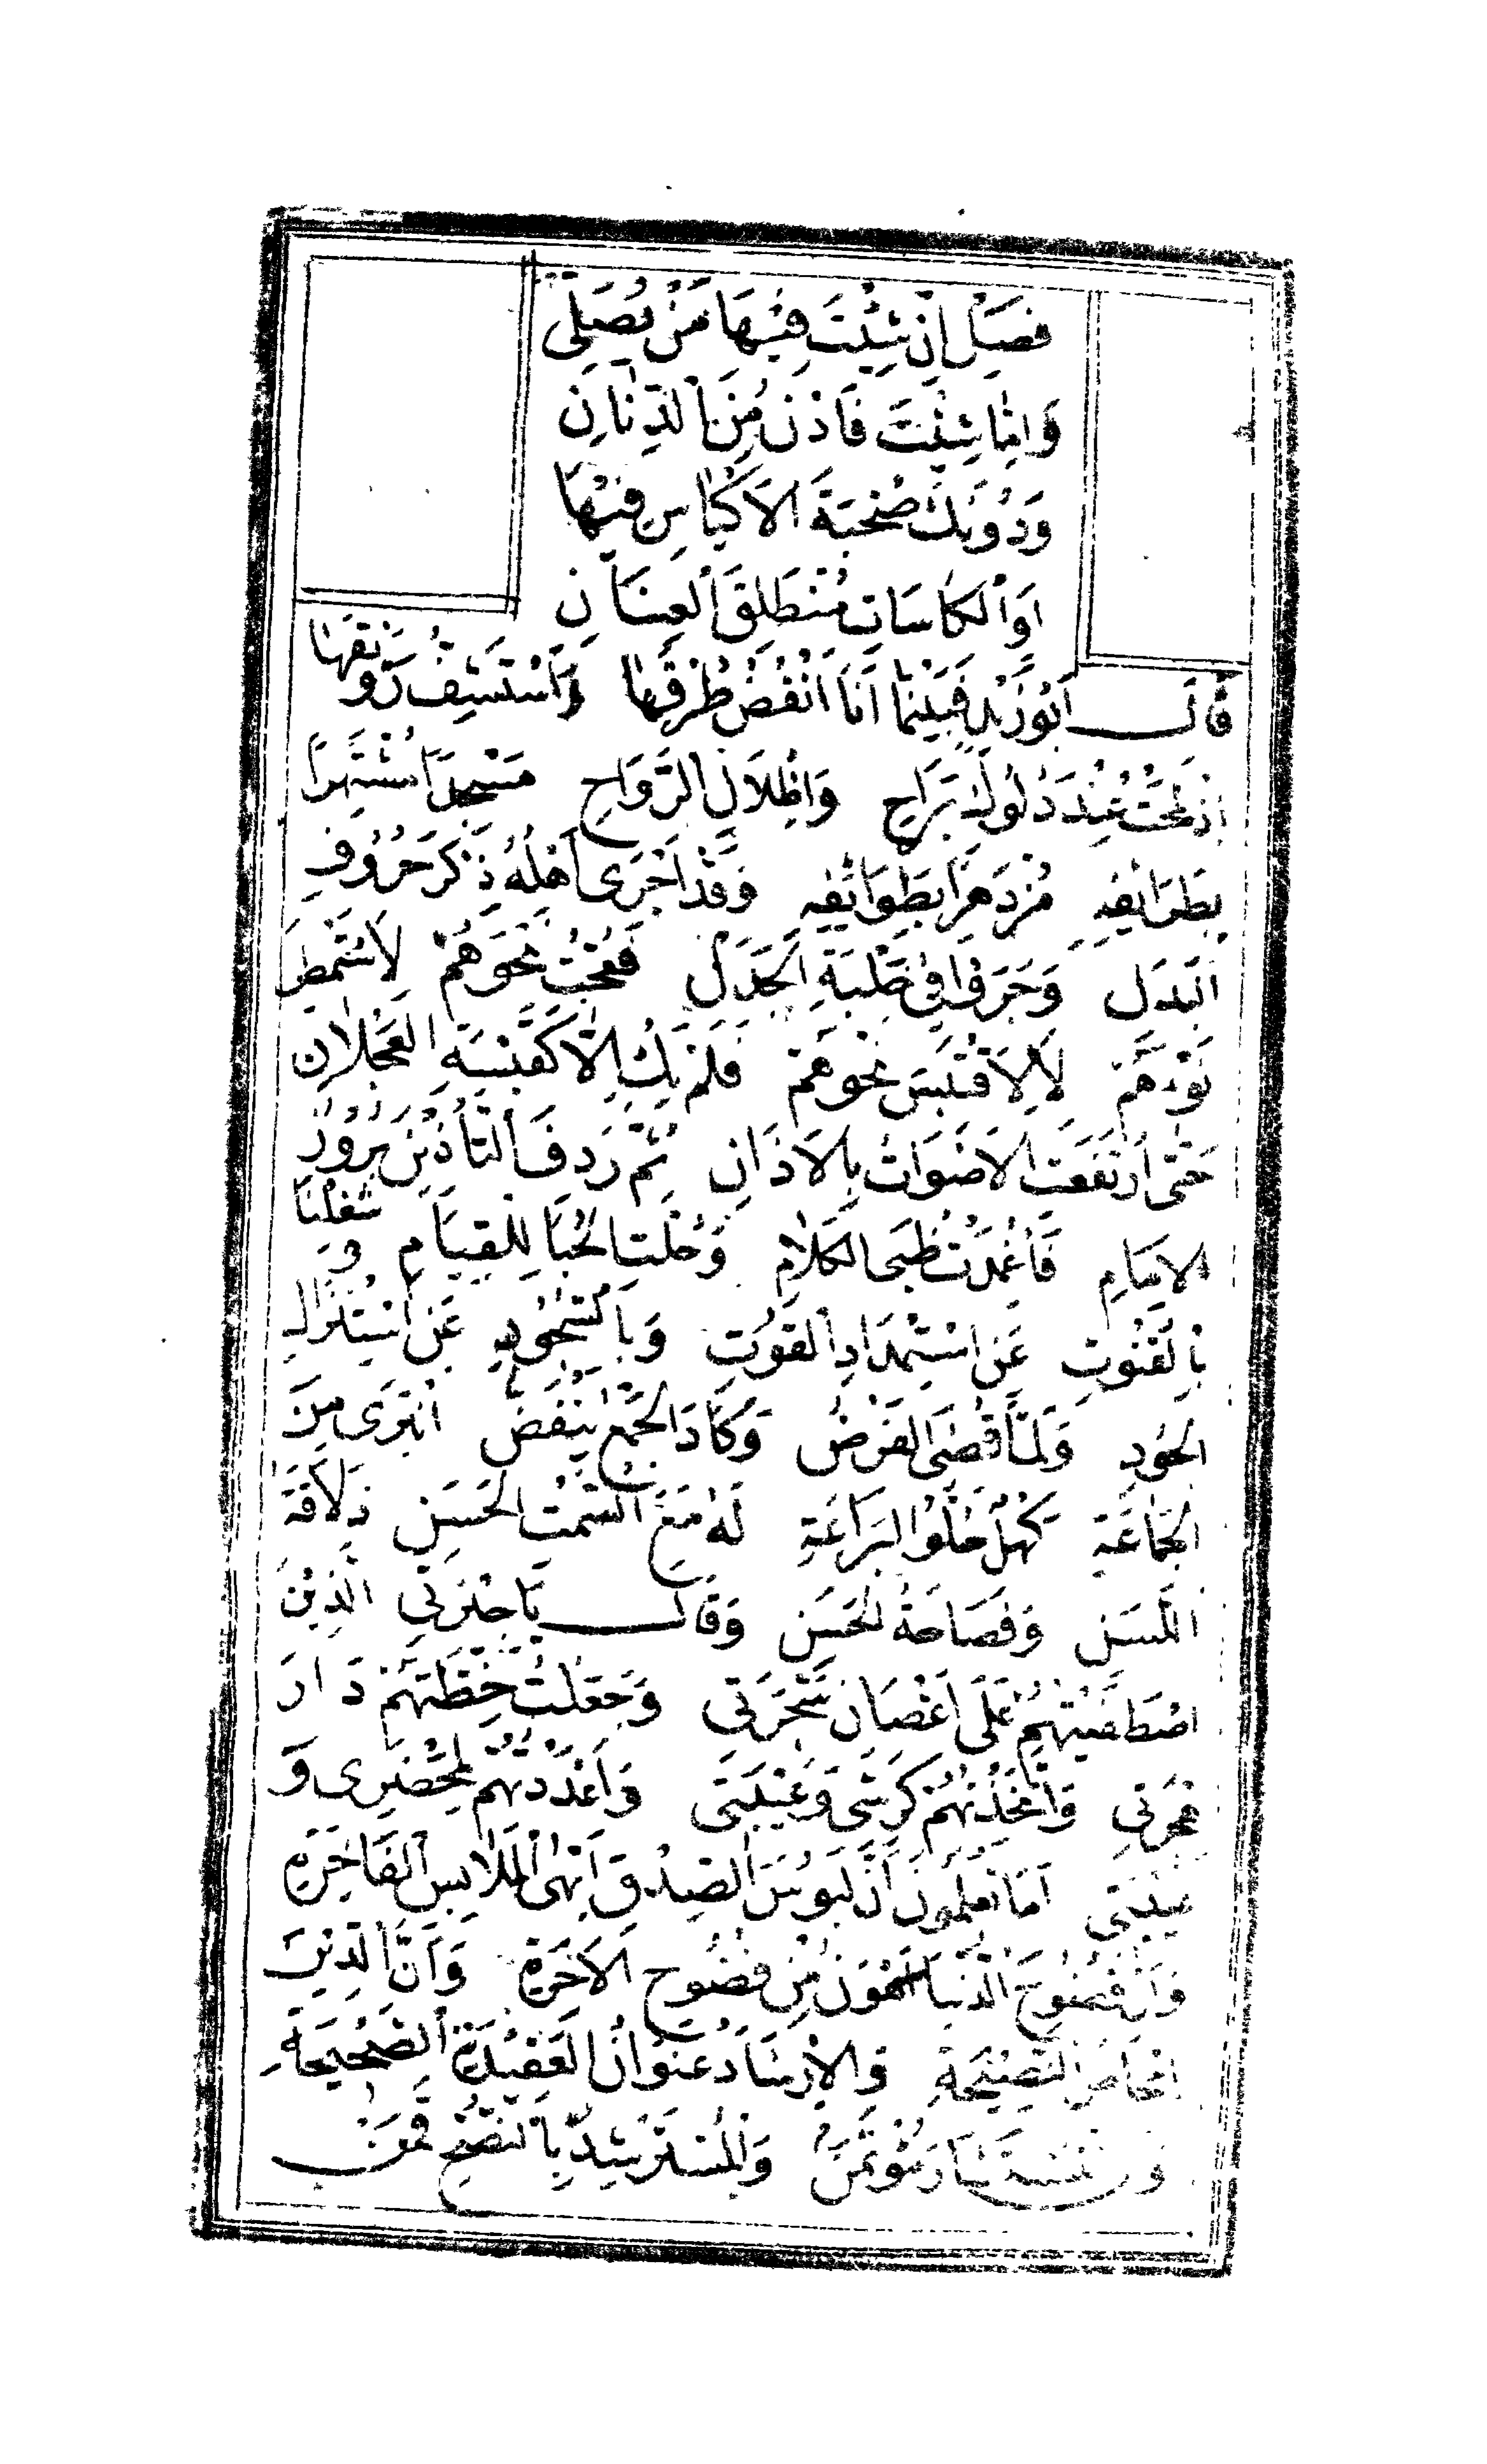 فَصَلِّ اِنْ شِئْتَ فِيْهَا مَنْ يُصَلِّىْ
وَاِمَّا شِئْتَ فَادْنُ مِنَ الدِّنَانِ
وَدُوْنَكَ صُحْبَةَ الاَكْيَاسِ فِيْهَا
اَوِ الْكَاسَاتِ مُنْطَلِقَ الْعِنَانِ
قَالَ اَبُوْ زَيْدٍ فَبَيْنَمَا اَنَا اَنْفُضُ طُرُقَهَا وَاَسْتَشِفُّ رَوْنَقَهَا
اِذْ لَمَحْتُ عِنْدَ دُلُوْكِ بَرَاحِ وَاِظْلَالِ الرَّوَاحِ مَسْجِدًا مُشْتَهِرًا
بِطَرَائِفِهِ مُزْدَهِرًا بِطَوَائِفِهِ وَقَدْ اَجْرَى اَهْلُهُ ذِكْرَ حُرُوْفِ
الْبَدَلِ وَجَرَوْا فِىْ حَلْبَةِ الْجَدَلِ فَعُجْتُ نَحْوَهُمْ لِاَسْتَمْطِرَ
نَوْءَهُمْ لَا لِاَقْتَبِسَ نَحْوَهُمْ فَلَمْ يَكُ اِلَّا كَقَبْسَةِ الْعَجْلَانِ
حَتّٰى ارْتَفَعَتِ الاَصْوَاتُ بِالاَذَانِ ثُمَّ رَدِفَ التَّاْذِيْنَ بُرُوْزُ
الاِمَامِ فَاُغْمِدَتْ ظُبَى الْكَلَامِ وَحُلَّتِ الْحُبَا لِلْقِيَامِ وَشُغِلْنَا
بِالْقُنُوْتِ عَنِ اسْتِمْدَادِ الْقُوْتِ وَبِالسُّجُوْدِ عَنِ اسْتِنْزَالِ
الْجُوْدِ وَلَمَّا قُضِىَ الْفَرْضُ وَكَادَ الْجَمْعُ يَنْفَضُّ انْبَرَى مِنَ
الْجَمَاعَةِ كَهْلٌ حُلْوُ الْبَرَاعَةِ لَهُ مَعَ السَّمْتِ الْحَسَنِ ذَلَاقَةُ
اللَّسَنِ وَفَصَاحَةُ الْحَسَنِ وَقَالَ يَا جِيْرَتِى الَّذِيْنَ
اصْطَفَيْتُهُمْ عَلَى اَغْصَانِ شَجَرَتِى وَجَعَلْتُ خِطَّتَهُمْ دَارَ
هِجْرَتِى وَاتَّخَذْتُهُمْ كَرِشِى وَعَيْبَتِى وَاَعْدَدْتُهُمْ لِمَحْضَرِى وَ
غَيْبَتِى اَمَا تَعْلَمُوْنَ اَنَّ لَبُوْسَ الصِّدْقِ اَبْهَى الْمَلَابِسِ الْفَاخِرَةِ
وَاَنَّ فُضُوْحَ الدُّنْيَا اَهْوَنُ مِنْ فُضُوْحِ الاٰخِرَةِ وَاَنَّ الدِّيْنَ
اِمْحَاضُ النَّصِيْحَةِ وَالاِرْشَادَ عُنْوَانُ الْعَقِيْدَةِ الصَّحِيْحَةِ
وَالْمُسْتَشَارَ مُؤْتَمَنٌ وَالْمُسْتَرْشِدَ بِالنُّصْحِ قَمِنٌ